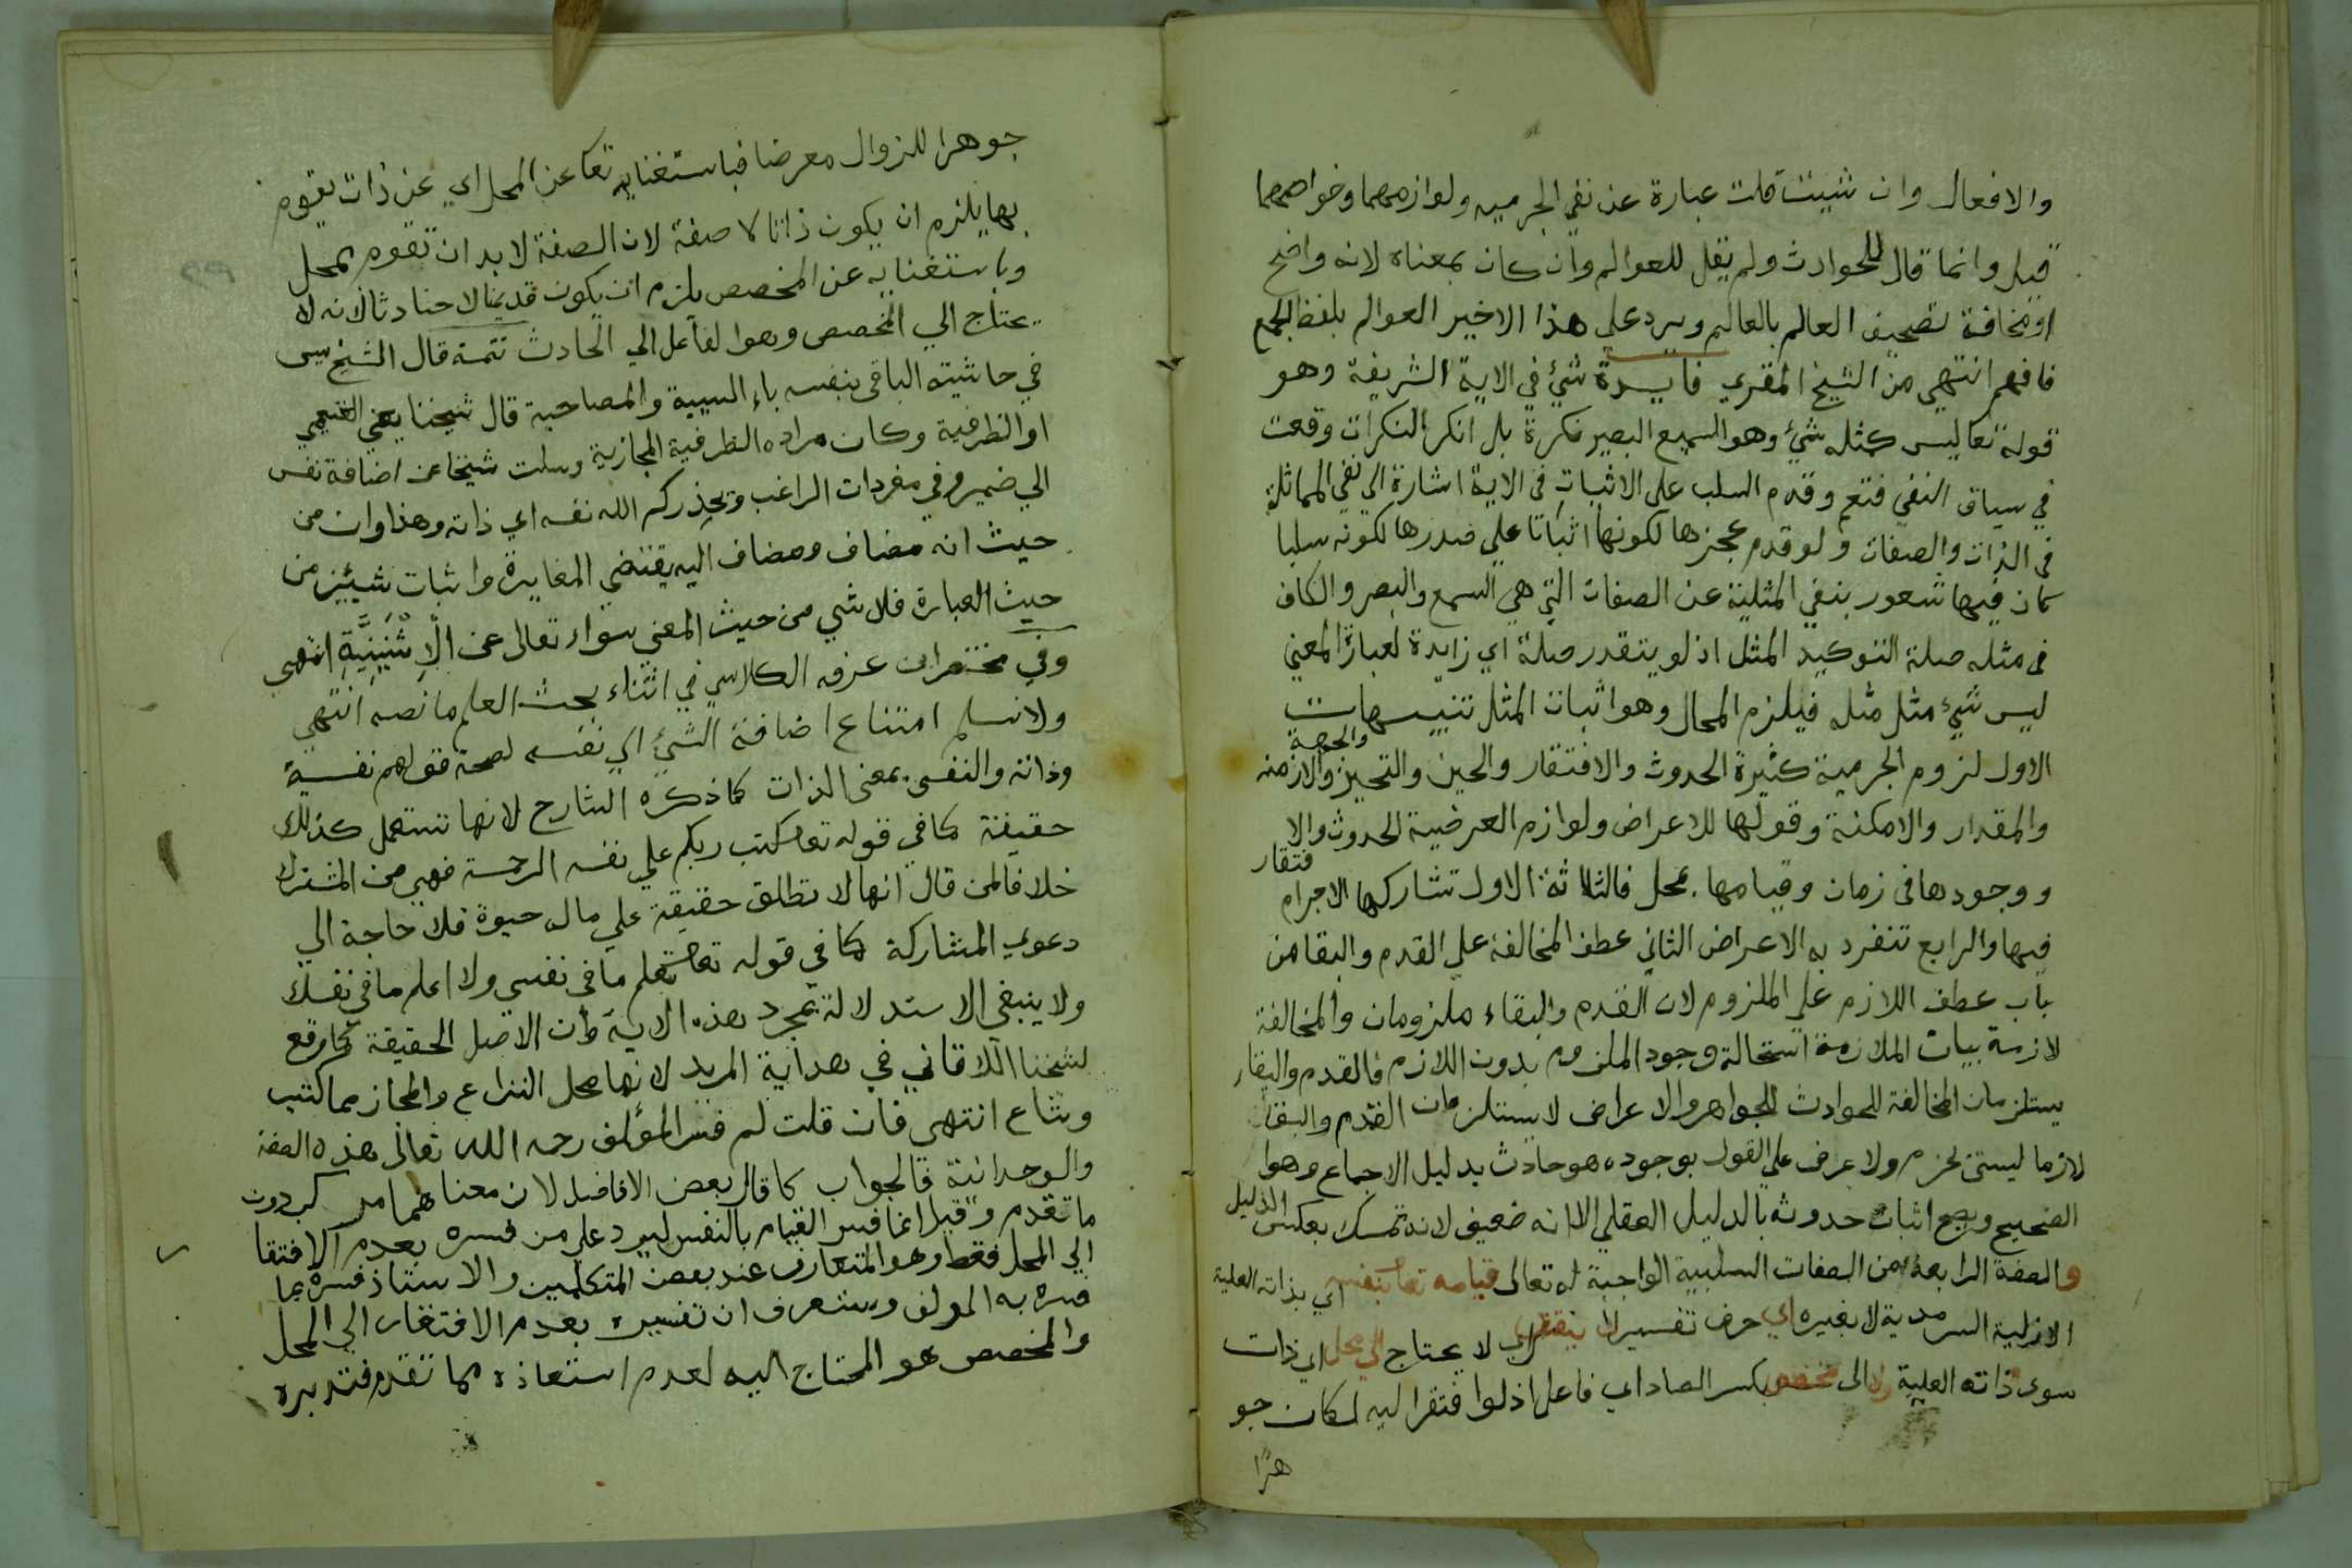 والافعال وان شيت قلت عبارة عن نفي الجرميه ولوازمهما وخواصهما
قيل وانما قال للحوادث ولم يقل للعوالم وان كان بمعناه لانه واضح
او مخافة تصحيف العالم بالعالم ويرد على هذا الاخير العوالم بلفظ الجمع
فافهم انتهي من الشيخ المقري فايدة شيء في الاية الشريفة وهو
قوله تعا ليس كمثله شيء وهو السميع البصير نكرة بل انكر النكرات وقعت
في سياق النفي فتعم وقدم السلب على الاثبات في الاية اشارة الي نفي المماثلة
في الذات والصفات ولو قدم عجزها لكونها اثباتا علي صدرها لكونه سلبا
كان فيها شعور بنفي المثلية عن الصفات التي هي السمع والبصر والكاف
في مثله صلة التوكيد المثل اذ لو يتقدر صلة اي زايدة لعبارة المعني
ليس شيء مثل مثله فيلزم المحال وهو اثبات المثل تنبيهات
الاول لزوم الجرمية كثيرة الحدوث والافتقار والحين والتحيز والجهة والازمنه
والمقدار والامكنة وقولها للاعراض ولوازم العرضية الحدوث والا
فتقار
ووجودها في زمان وقيامها بمحل فالثلاثة الاول تشاركها الاجرام
فيها والرابع تنفرد به الاعراض الثاني عطف المخالفة علي القدم والبقا من
باب عطف اللازم على الملزوم لان القدم والبقاء ملزومان والمخالفة
لازمة بيات الملازمة استحالة وجود الملزوم بدون اللازم فالقدم والبقاء
يستلزمان المخالفة للحوادث الجواهر والاعراض لا يستلزمان القدم والبقا
لازما ليستن لجزم ولا عرض علي القول بوجوده هو حادث بدليل الاجماع وهو
الصحيح ويصح اثبات حدوثه بالدليل العقلي الا انه ضعيف لانه تمسك بعكس الدليل
والصفة الرابعة من الصفات السلبية الواجبة له تعالى قيامه تعا بنفسه اي بذاته العلية
الازلية السرمدية لا بغيره اي حرف تفسير لا يفتقر اي لا يحتاج الي محل اي ذات
سوى ذاته العلية ولا الى مخصص بكسر الصاد اي فاعل اذ لو افتقر اليه لكان جو
هرا
جوهرا للزوال معرضا فباستغنايه تعا عن المحل اي عن ذات يقوم
بها يلزم ان يكون ذاتا لا صفة لان الصفة لا بد ان تقوم بمحل
وباستغنايه عن المخصص يلزم ان يكون قديما لا حادثا لانه لا
يحتاج الي المخصص وهو الفاعل الي الحادث تتمة قال الشيخ يس
في حاشيته الباقي بنفسه باء السببية والمصاحبة قال شيخنا يعني الغنيمي
او الظرفية وكان مراده الظرفية المجازية وسلت شيخنا عن اضافة نفس
الي ضمير وفي مفردات الراغب ويحذركم الله نفسه اي ذاته وهذا وان من
حيث انه مضاف ومضاف اليه يقتضي المغايرة واثبات شيئين من
حيث العبارة فلا شي من حيث المعني سواه تعالى عن الاثنينية انتهي
وفي مختصر ابن عرفه الكلامي في اثناء بحث العلم ما نصه انتهي
ولا نسلم امتناع اضافة الشيء الي نفسه لصحة قولهم نفسه
وذاته والنفس بمعنى الذات كما ذكره الشارح لانها تستعمل كذلك
حقيقة كما في قوله تعا كتب ربكم علي نفسه الرحمة فهي من المشترك
خلافا لمن قال انها لا تطلق حقيقة علي ماله حيوة فلا حاجة الي
دعوي المشاركة كما في قوله تعا تعلم ما في نفسي ولا اعلم ما في نفسك
ولا ينبغي الاستدلالة بمجرد هذه الاية وان الاصل الحقيقة كما وقع
لشيخنا اللاقاني في هداية المريد لانها محل النزاع والمجاز مما كتب
وشاع انتهي فان قلت لم فسر المؤلف رحمه الله تعالى هذه الصفة
والوحدانية فالجواب كما قال بعض الافاضل لان معناهما مر كبدون
ما تقدم وقيل انما فسر القيام بالنفس ليرد علي من فسره بعدم الافتقا
الي المحل فقط وهو المتعارف عند بعض المتكلمين والاستاذ فسره بما
فسره به المولف وستعرف ان تفسيره بعدم الافتقار الي المحل
والمخصص هو المحتاج اليه لعدم استعاذه مما تقدم فتدبره